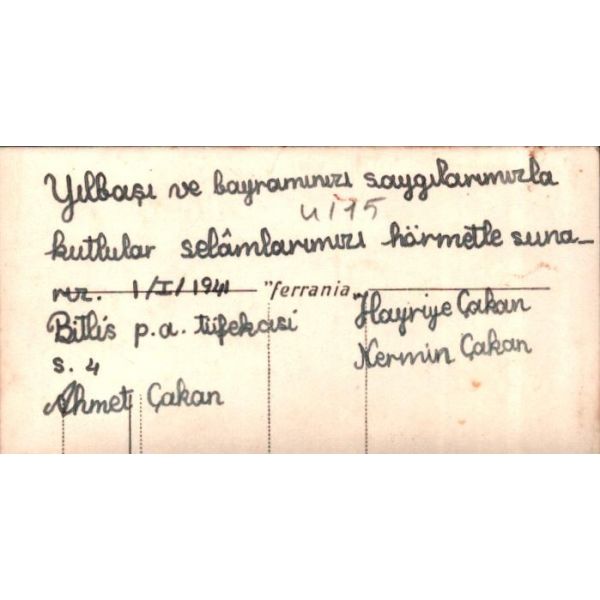 Yılbaşı ve bayramınızı saygılarımızla
U175
kutlular selâmlarımızı hörmetle suna_
rız. 1/I/1941 "ferrania"
Bitlis p.a. tüfekcisi
Hayriye Çakan
Nermin Çakan
s. 4
Ahmet Çakan